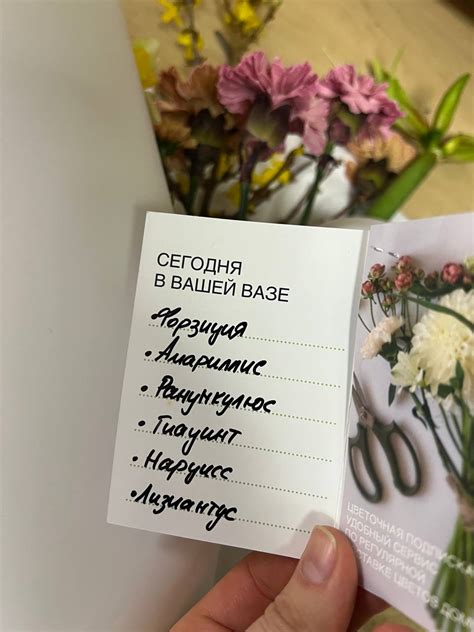 СЕГОДНЯ
В ВАШЕЙ ВАЗЕ
Форзиция
• Амариллис
• Ранункулюс
• Гиацинт
• Нарцисс
• Лизиантус
ЦВЕТОЧНАЯ ПОДПИСКА
УДОБНЫЙ СЕРВИС
ПО РЕГУЛЯРНОЙ
ДОСТАВКЕ ЦВЕТОВ ДОМО